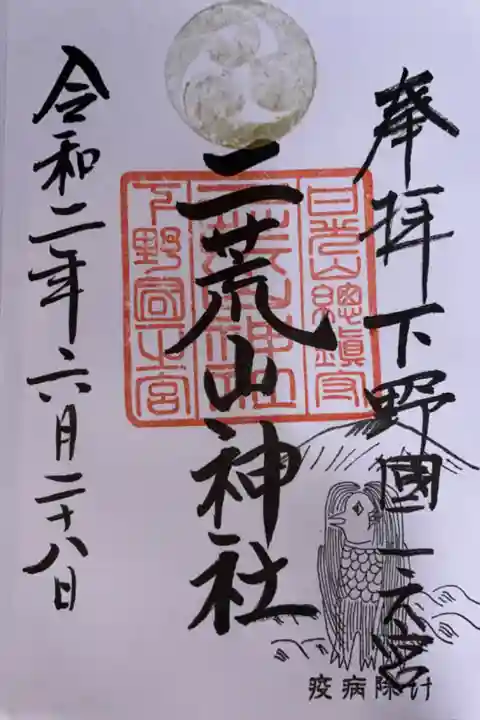 奉拝下野國一之宮
日光山總鎮守
二荒山神社
二荒山神社
下野國一宮
令和二年六月二十八日
疫病除け